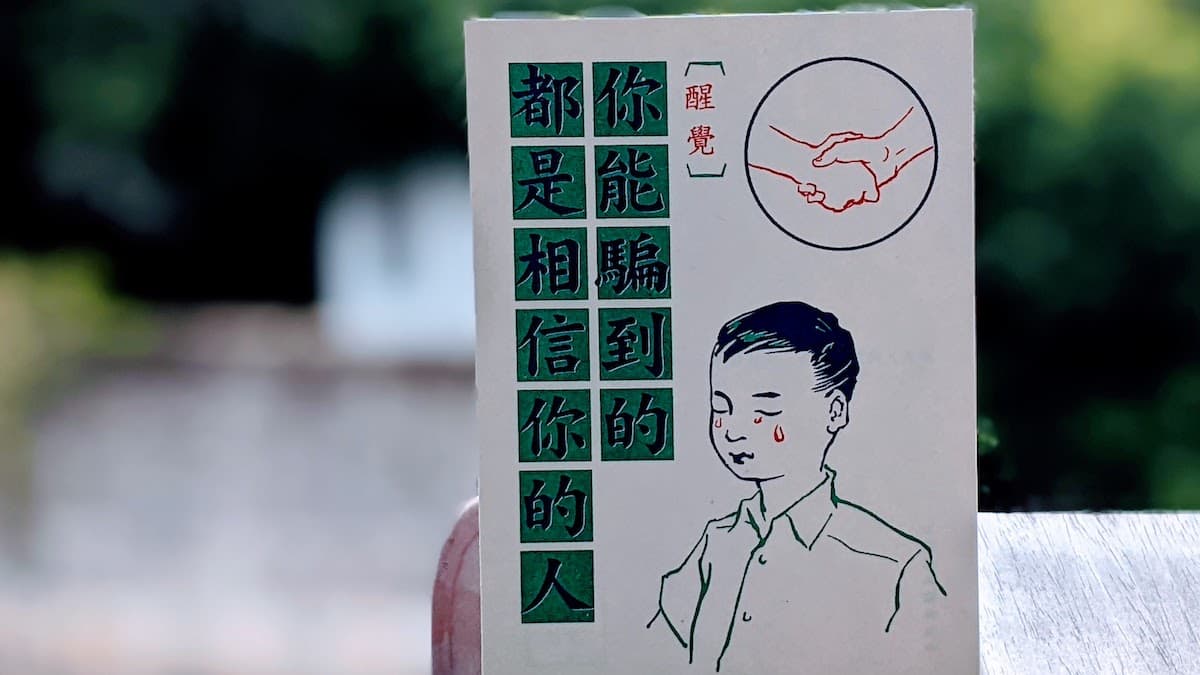 〔醒覺〕
你能騙到的
都是相信你的人